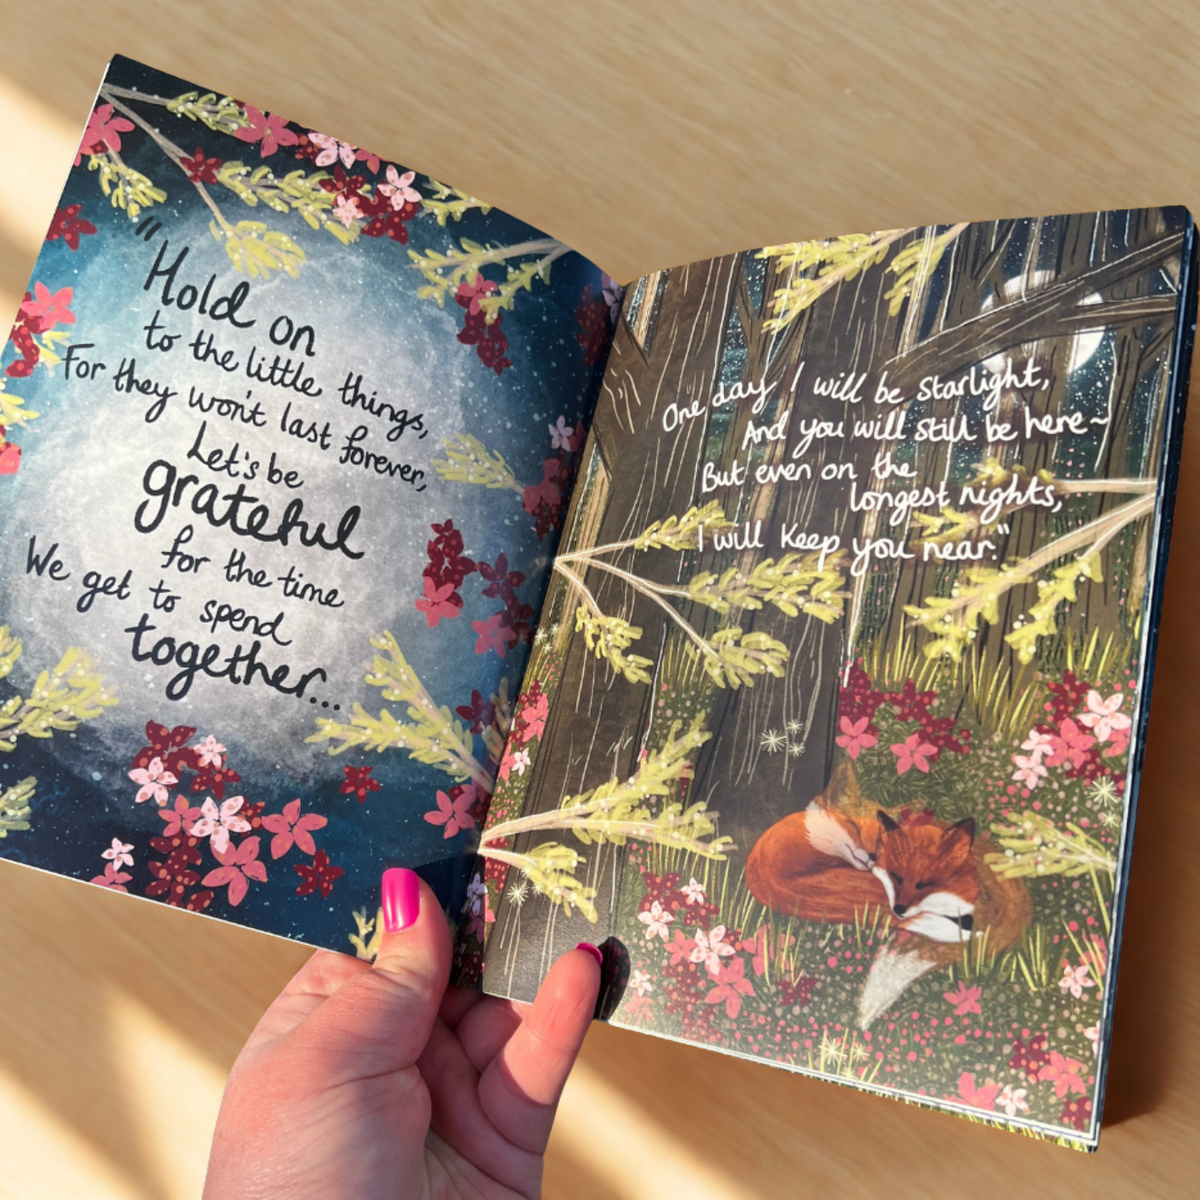 "Hold on
to the little things,
For they won't last forever,
Let's be
grateful
for the time
We get to spend
together...
One day I will be starlight,
And you will still be here~
But even on the
longest nights,
I will keep you near."